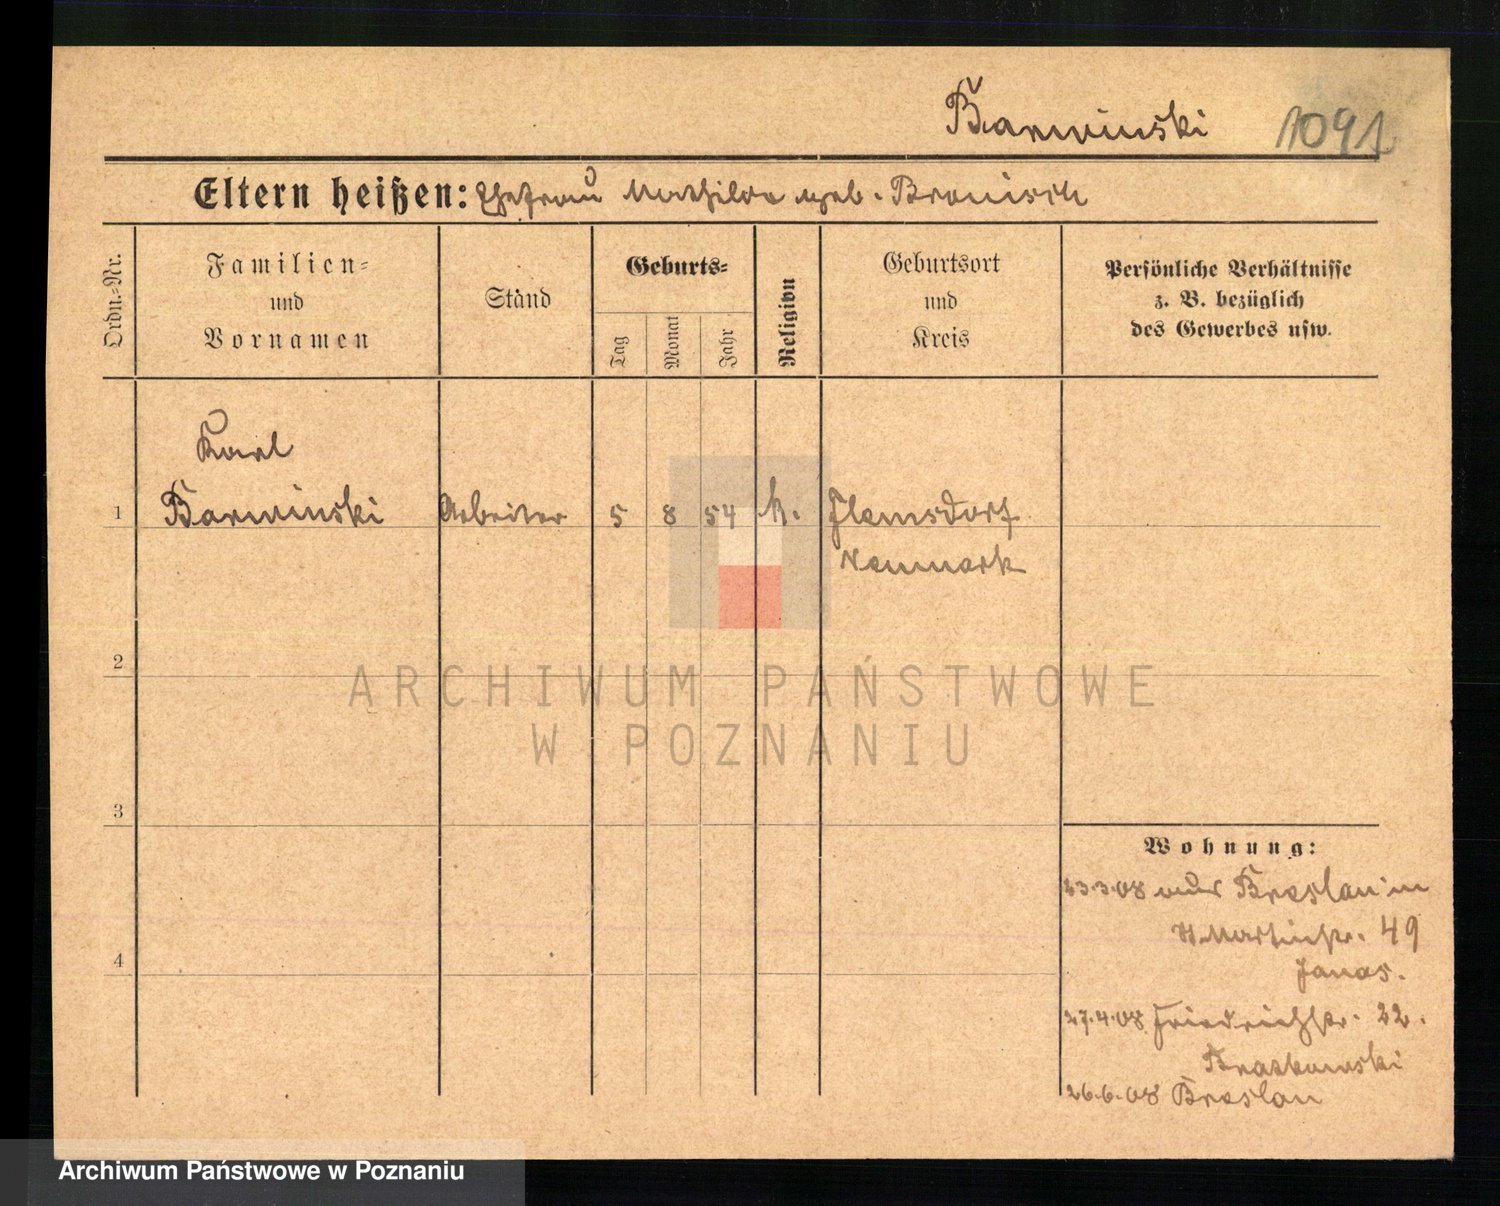 Barwinski 1091
Eltern heißen: Ehefrau Mathilde geb. Bronisch
Ordn.=Nr.
Familien=
und
Vornamen
Stand
Geburts=
Tag
Monat
Jahr
Religion
Geburtsort
und
Kreis
Persönliche Verhältnisse
z. B. bezüglich
des Gewerbes usw.
Karl
1 Barwinski Arbeiter 5 8 54 k. Flemsdorf
Neumark
2
3
4
ARCHIWUM PAŃSTWOWE
W POZNANIU
Wohnung:
23.3.08 aus Breslau in
Martinstr. 49
Janas.
27.4.08 Friedrichstr. 22.
Bratkowski
26.6.08 Breslau
Archiwum Państwowe w Poznaniu